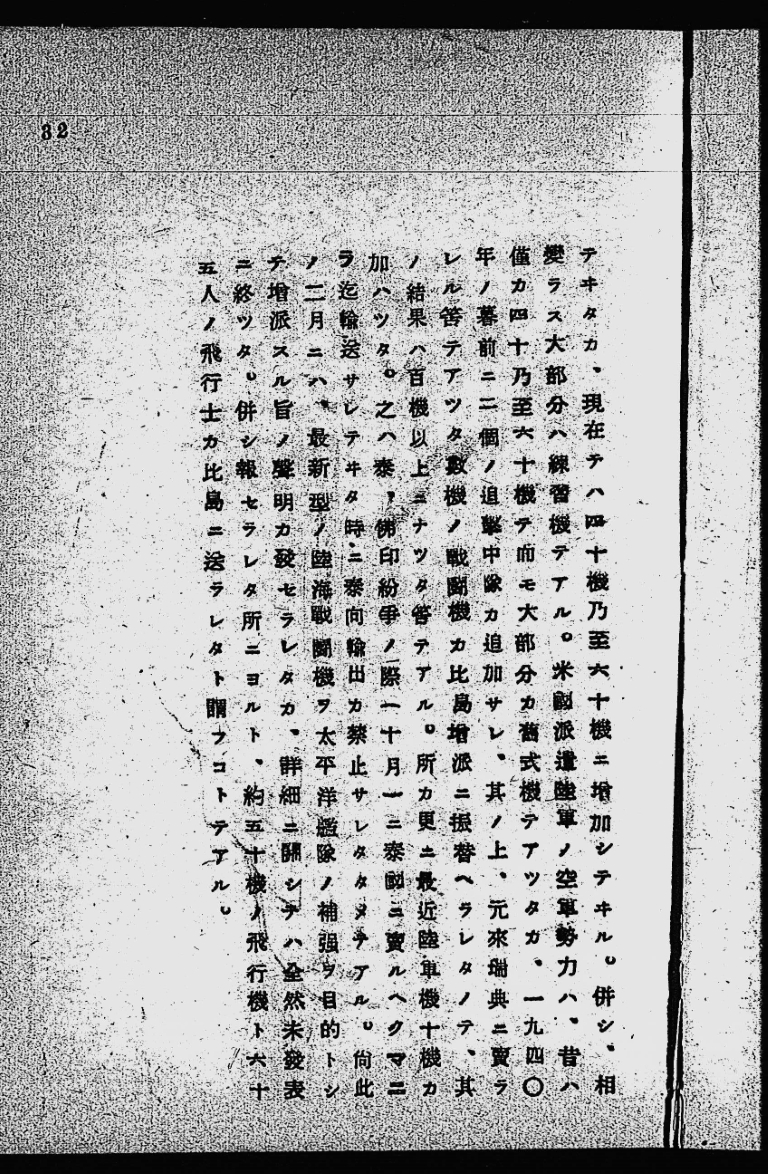 32
テヰタカ、現在テハ四十機乃至六十機ニ增加シテヰル。併シ、相
變ラス大部分ハ練習機テアル。米國派遣陸軍ノ空軍勢力ハ、昔ハ
僅カ四十乃至六十機テ而モ大部分カ舊式機テアツタカ、一九四〇
年ノ暮前ニ二個ノ追擊中隊カ追加サレ、其ノ上、元來瑞典ニ賣ラ
レル筈テアツタ數機ノ戰鬪機カ比島增派ニ振替ヘラレタノテ、其
ノ結果ハ百機以上ニナツタ筈テアル。所カ更ニ最近陸軍機十機カ
加ハツタ。之ハ泰、佛印紛爭ノ際一十月一ニ泰國ニ賣ルヘクマニ
ラ迄輸送サレテヰタ時ニ泰向輸出カ禁止サレタタメテアル。尙此
ノ二月ニハ、最新型ノ陸海戰鬪機ヲ太平洋艦隊ノ補强ヲ目的トシ
テ增派スル旨ノ聲明カ發セラレタカ、詳細ニ關シテハ全然未發表
ニ終ツタ。併シ報セラレタ所ニヨルト、約五十機ノ飛行機ト六十
五人ノ飛行士カ比島ニ送ラレタト謂フコトテアル。